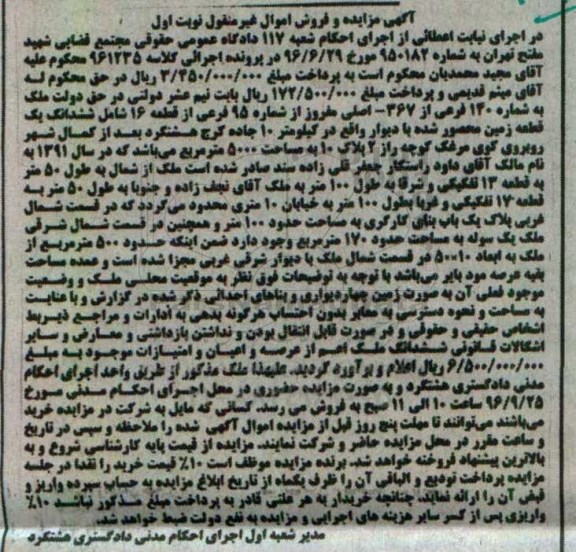 آگهی مزایده و فروش اموال غیرمنقول نوبت اول
در اجرای نیابت اعطائی از اجرای احکام شعبه ۱۱۷ دادگاه عمومی حقوقی مجتمع قضایی شهید
مفتح تهران به شماره ۹۵۰۱۸۲ مورخ ۹۶/۶/۲۹ در پرونده اجرائی کلاسه ۹۶۱۲۳۵ محکوم علیه
آقای مجید محمدیان محکوم است به پرداخت مبلغ ۳/۴۵۰/۰۰۰/۰۰۰ ریال در حق محکوم له
آقای میثم قدیمی و پرداخت مبلغ ۱۷۲/۵۰۰/۰۰۰ ریال بابت نیم عشر دولتی در حق دولت ملک
به شماره ۱۴۰ فرعی از ۳۶۷- اصلی مفروز از شماره ۹۵ فرعی از قطعه ۱۶ شامل ششدانگ یک
قطعه زمین محصور شده با دیوار واقع در کیلومتر ۱۰ جاده کرج هشتگرد بعد از کمال شهر
روبروی کوی مرغک کوچه راز ۲ پلاک ۱۰ به مساحت ۵۰۰۰ مترمربع می‌باشد که در سال ۱۳۹۱ به
نام مالک آقای داود راستکار جعفر قلی زاده سند صادر شده است ملک از شمال به طول ۵۰ متر
به قطعه ۱۳ تفکیکی و شرقا به طول ۱۰۰ متر به ملک آقای نجف زاده و جنوبا به طول ۵۰ متر به
قطعه ۱۷ تفکیکی و غربا بطول ۱۰۰ متر به خیابان ۱۰ متری محدود می‌گردد که در قسمت شمال
غربی پلاک یک باب بنای کارگری به مساحت حدود ۱۰۰ متر و همچنین در قسمت شمال شرقی
ملک یک سوله به مساحت حدود ۱۷۰ مترمربع وجود دارد ضمن اینکه حدود ۵۰۰ مترمربع از
ملک به ابعاد ۱۰*۵۰ در قسمت شمال ملک با دیوار شرقی غربی مجزا شده است و عمده مساحت
بقیه عرصه مود بایر می‌باشد با توجه به توضیحات فوق نظر به موقعیت محلی ملک و وضعیت
موجود فعلی آن به صورت زمین چهاردیواری و بناهای احداثی ذکر شده در گزارش و با عنایت
به مساحت و نحوه دسترسی به معابر بدون احتساب هرگونه بدهی به ادارات و مراجع ذیربط
اشخاص حقیقی و حقوقی و در صورت قابل انتقال بودن و نداشتن بازداشتی و معارض و سایر
اشکالات قانونی ششدانگ ملک اعم از عرصه و اعیان و امتیازات موجود به مبلغ
۶/۵۰۰/۰۰۰/۰۰۰ ریال اعلام و برآورد گردید. علیهذا ملک مذکور از طریق واحد اجرای احکام
مدنی دادگستری هشتگرد و به صورت مزایده حضوری در محل اجرای احکام مدنی مورخ
۹۶/۹/۲۵ ساعت ۱۰ الی ۱۱ صبح به فروش می رسد. کسانی که مایل به شرکت در مزایده خرید
می‌باشند می‌توانند تا مهلت پنج روز قبل از مزایده اموال آگهی شده را ملاحظه و سپس در تاریخ
و ساعت مقرر در محل مزایده حاضر و شرکت نمایند. مزایده از قیمت پایه کارشناسی شروع و به
بالاترین پیشنهاد فروخته خواهد شد. برنده مزایده موظف است ۱۰٪ قیمت خرید را نقدا در جلسه
مزایده پرداخت تودیع و الباقی آن را ظرف یکماه از تاریخ ابلاغ مزایده به حساب سپرده واریز و
قبض آن را ارائه نماید. چنانچه خریدار به هر علتی قادر به پرداخت مبلغ مذکور نباشد ۱۰٪
واریزی پس از کسر سایر هزینه های اجرایی و مزایده به نفع دولت ضبط خواهد شد.
مدیر شعبه اول اجرای احکام مدنی دادگستری هشتگرد